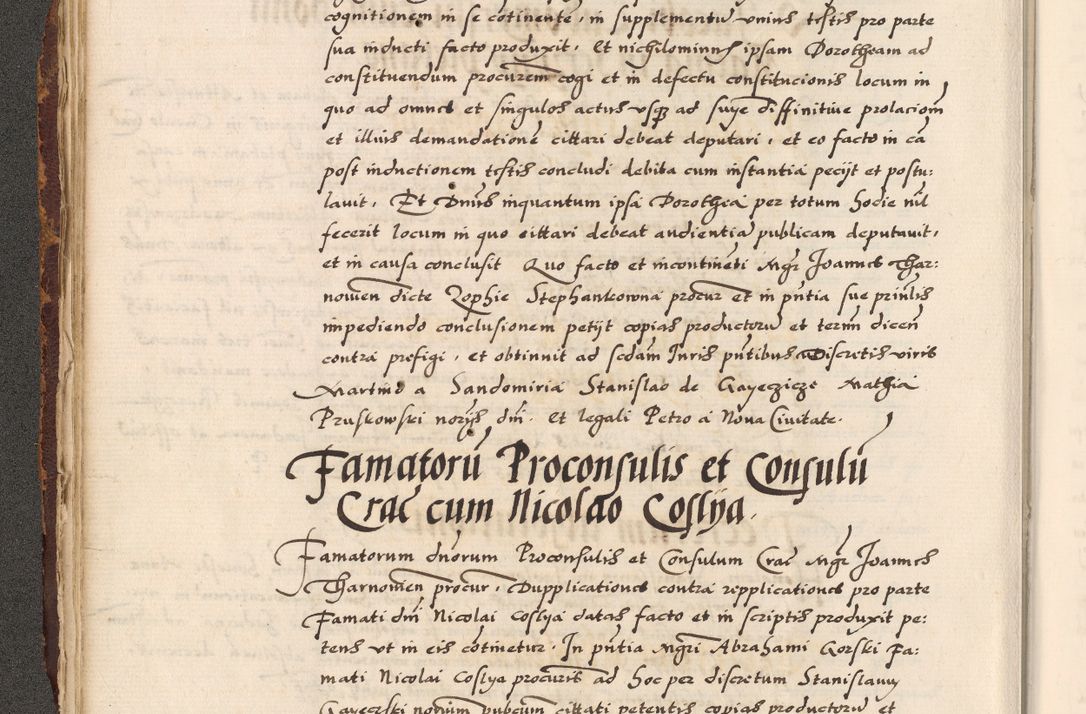 cognitionem in se cōtinentē, in supplementū vnius testis pro parte
sua inducti facto produxit. Et nichilominus ipsam Dorotheam ad
constituendum procurem cogi et in defectu constitucionis locum in
quo ad omnes et singulos actus vsq; ad suyē diffinitiue prolaciom
et illius demandationē cittari debeat deputari, et eo facto in cā
post inductionem testis concludi debita cum instantia peciit et postu:
lauit, Et Dnus inquantum ipsa Dorothea per totum hodie nil
fecerit locum in quo cittari debeat audientiā publicam deputauit,
et in causa conclusit Quo facto et incontinēti Mgr Joannes Thar:
nowen dicte Zophie Stephankowna procur et in pntia sue prinlis
impediendo conclusionem petijt copias productorū et termn dicen
contra prefigi, et obtinuit ad scdam Juris pntibus Discretis viris
Martino a Sandomiria Stanislao de Gayeczicze Mathia
Pruskowski norijs dni. et legali Petro a Noua Ciuitate.
Famatorū Proconsulis et Consulū
Crac cum Nicolao Coslya.
Famatorum dnorum Proconsulis et Consulum Crac Mgr Joannes
Tharnowen procur, Dupplicationes contra repplicationes pro parte
Famati dni Nicolai Coslya datas facto et in scriptis produxit pe:
tens vt in eis cōtinetur. In pntia Mgri Abrahami Gorski Fa:
mati Nicolai Coslya procuris ad hoc per discretum Stanislaum
Gayeczski norium pubcum cittati petentis copias productorū et